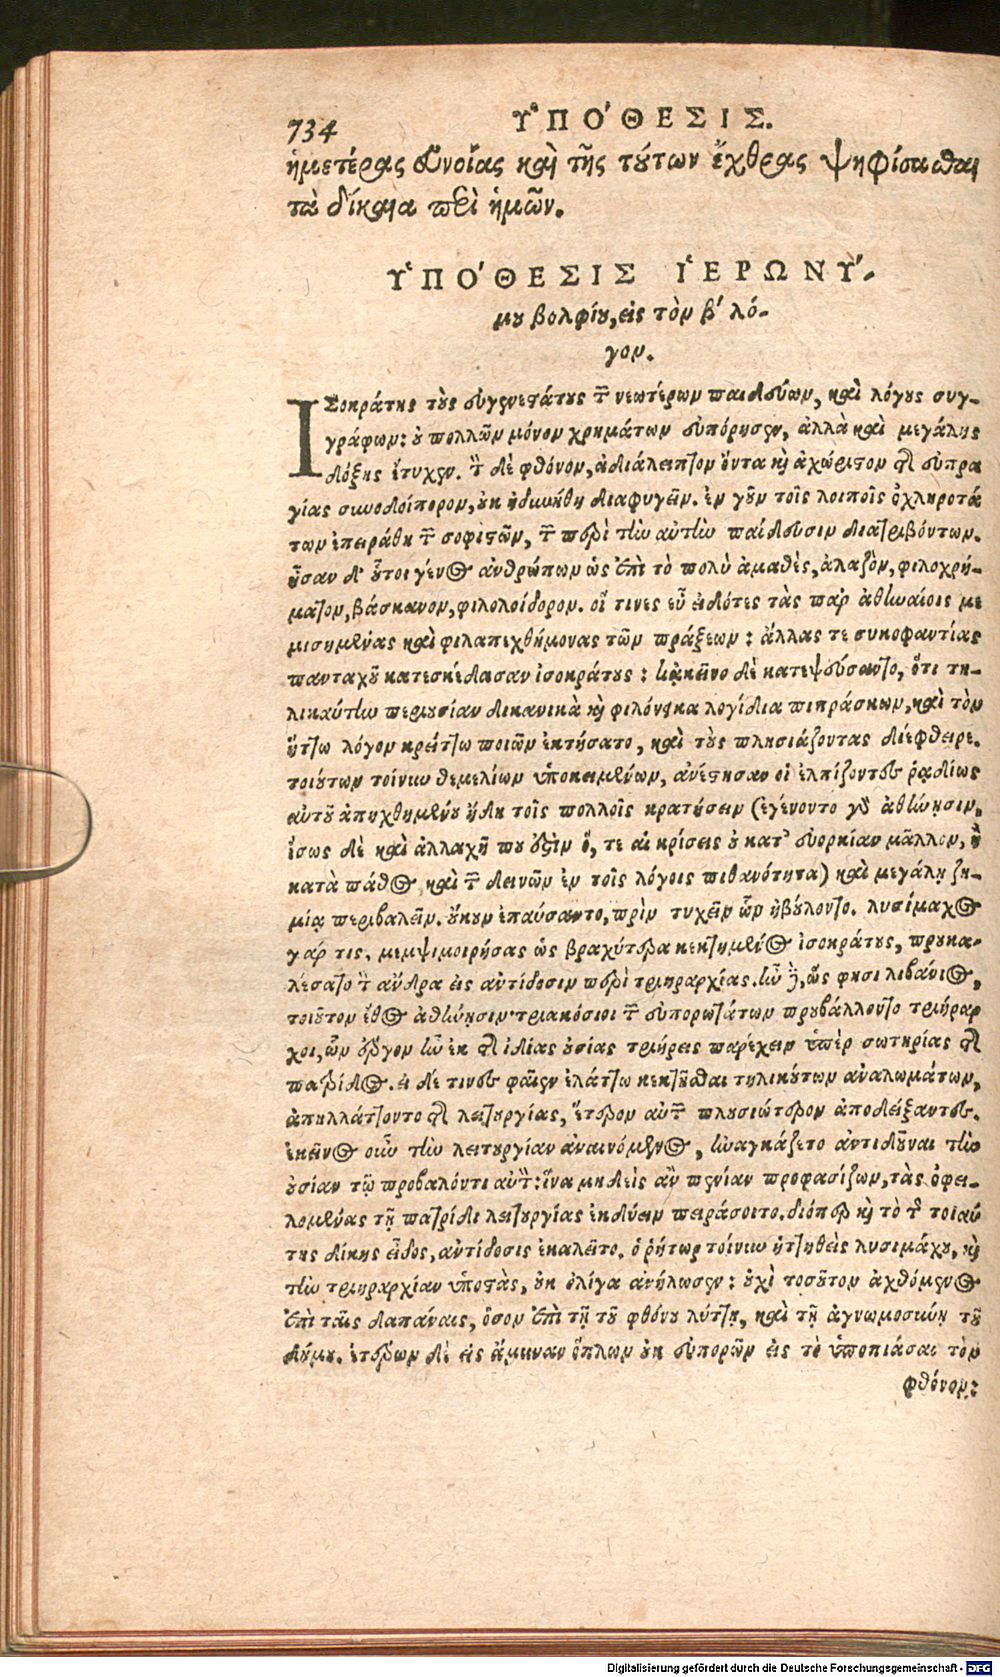 734 ΥΠΟΘΕΣΙΣ.
ἡμετέρας εὐνοίας καὶ τῆς τούτων ἔχθρας ψηφίσασθαι
τὰ δίκαια περὶ ἡμῶν.
ΥΠΟΘΕΣΙΣ ΙΕΡΩΝΥ-
μου βολφίου, εἰς τὸν β' λό-
γον.
ΙΣοκράτης τοὺς εὐγενεστάτους τῶν νεωτέρων παιδεύων, καὶ λόγους συγ-
γράφων: οὐ πολλῶν μόνον χρημάτων εὐπόρησεν, ἀλλὰ καὶ μεγάλης
δόξης ἔτυχεν. τὸν δὲ φθόνον, ἀδιάλειπτον ὄντα καὶ ἀχώριστον τῆς εὐπρα
γίας συνοδοίπορον, οὐκ ἠδυνήθη διαφυγεῖν. ἐν γοῦν τοῖς λοιποῖς ὀχληροτά
των ἐπειράθη τῶν σοφιστῶν, τῶν περὶ τὴν αὐτὴν παίδευσιν διατριβόντων.
ἦσαν δ' οὗτοι γένος ἀνθρώπων ὡς ἐπὶ τὸ πολὺ ἀμαθὲς, ἀλαζὸν, φιλοχρή-
ματον, βάσκανον, φιλολοίδορον. οἵ τινες εὖ εἰδότες τὰς παρ' ἀθηναίοις με
μισημένας καὶ φιλαπεχθήμονας τῶν πράξεων: ἄλλας τε συκοφαντίας
πανταχοῦ κατεσκέδασαν ἰσοκράτους: κἀκεῖνο δὲ κατεψεύσαντο, ὅτι τη-
λικαύτην περιουσίαν δικανικὰ καὶ φιλόνεικα λογίδια πιπράσκων, καὶ τὸν
ἥττω λόγον κρείττω ποιῶν ἐκτήσατο, καὶ τοὺς πλησιάζοντας διέφθειρε.
τοιούτων τοίνυν θεμελίων ὑποκειμένων, ἀνέστησαν οἱ ἐλπίζοντες ῥᾳδίως
αὐτοῦ ἀπηχθημένου ἤδη τοῖς πολλοῖς κρατήσειν (ἐγένοντο γὰρ ἀθήνησιν,
ἴσως δὲ καὶ ἀλλαχῆ που ἔσθ' ὅτε αἱ κρίσεις οὐ κατ' εὐορκίαν μᾶλλον, ἢ
κατὰ πάθος καὶ τῶν δεινῶν ἐν τοῖς λόγοις πιθανότητα) καὶ μεγάλῃ ζη-
μίᾳ περιβαλεῖν. οὔκουν ἐπαύσαντο, πρὶν τυχεῖν ὧν ἠβούλοντο. λυσίμαχος
γάρ τις, μεμψιμοιρήσας ὡς βραχύτερα κεκτημένος ἰσοκράτους, προυκα-
λέσατο τὸν ἄνδρα εἰς ἀντίδοσιν περὶ τριηραρχίας. ἦν δὲ, ὥς φησι λιβάνιος,
τοιοῦτον ἔθος ἀθήνησιν· τριακόσιοι τῶν εὐπορωτάτων προυβάλλοντο τριήραρ
χοι, ὧν ἔργον ἦν ἐκ τῆς ἰδίας οὐσίας τριήρεις παρέχειν ὑπὲρ σωτηρίας τῆς
πατρίδος. εἰ δέ τινες φαῖεν ἐλάττω κεκτῆσθαι τηλικούτων ἀναλωμάτων,
ἀπηλλάττοντο τῆς λειτουργίας, ἕτερον αὐτῶν πλουσιώτερον ἀποδείξαντες.
ἐκεῖνος οὖν τὴν λειτουργίαν ἀναινόμενος, ἠναγκάζετο ἀντιδοῦναι τὴν
οὐσίαν τῷ προβαλόντι αὐτόν: ἵνα μηδεὶς ἂν πενίαν προφασίζων, τὰς ὀφει-
λομένας τῇ πατρίδι λειτουργίας ἐκδύειν πειράσοιτο. διόπερ καὶ τὸ τῆς τοιαύ
της δίκης εἶδος, ἀντίδοσις ἐκαλεῖτο. ὁ ῥήτωρ τοίνυν ἡττηθεὶς λυσιμάχου, καὶ
τὴν τριηραρχίαν ὑποστὰς, οὐκ ὀλίγα ἀνήλωσεν: οὐχὶ τοσοῦτον ἀχθόμενος
ἐπὶ ταῖς δαπάναις, ὅσον ἐπὶ τῇ τοῦ φθόνου λύττῃ, καὶ τῇ ἀγνωμοσύνῃ τοῦ
δήμου. ἑτέρων δὲ εἰς ἄμυναν ὅπλων οὐκ εὐπορῶν εἰς τὸ ὑποπιάσαι τὸν
φθόνον:
Digitalisierung gefördert durch die Deutsche Forschungsgemeinschaft - DFG